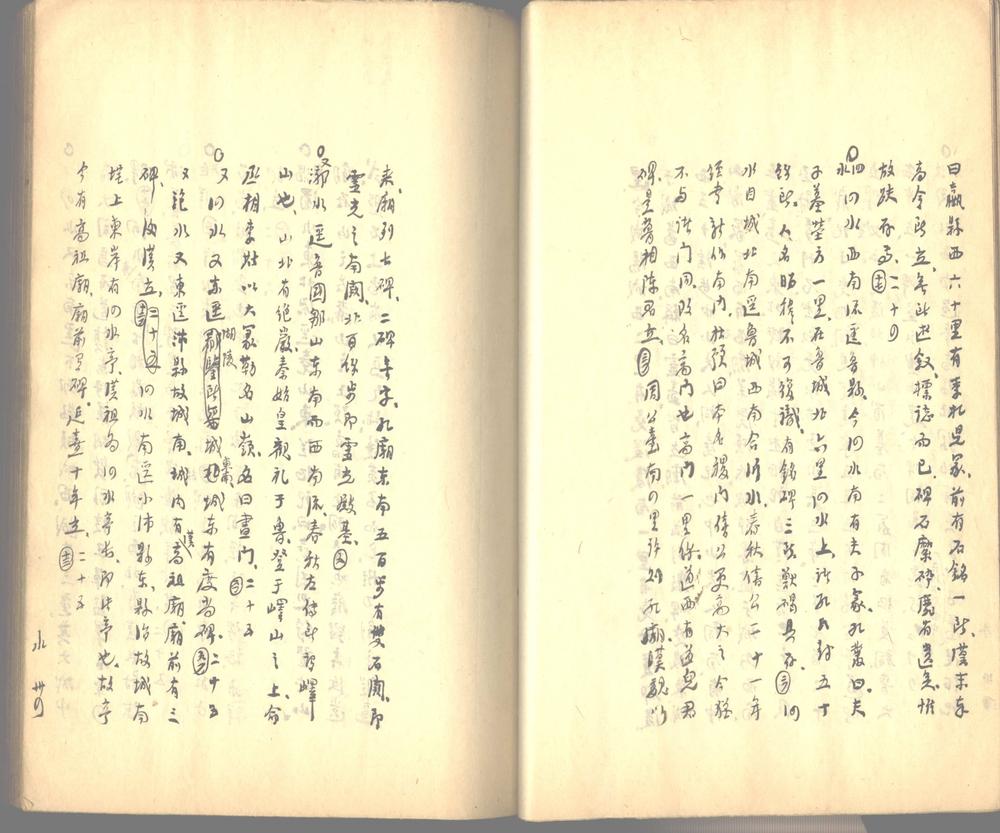 曰嬴縣西六十里有季札兒冢、前有石銘一所、漢末奉
高令所立、無所述敘、標誌而已、碑石糜碎、靡有遺矣、惟
故趺存焉、二十四
泗水西南流逕魯縣、今泗水南有夫子冢、孔叢曰、夫
子墓塋方一里、在魯城北六里泗水上、諸孔氏封五十
餘所、人名昭穆不可復識、有銘碑三所、獸碣具存、
水自城北南逕魯城西南合沂水、春秋僖公二十一年
經書新作南門、杜預曰本名稷門、僖公更高大之、今猶
不与諸門同、改名高門也、高門一里餘道西有道兒君
碑、是魯相陳君立、周公臺南四里許則孔廟、漢魏以
來、廟列七碑、二碑無字、孔廟東南五百步有雙石闕、即
靈光之南闕、北百餘步即靈光殿基、
又漷水逕魯國鄒山東南而西南流、春秋左傳所謂嶧
山也、山北有絕巖、秦始皇觀礼于魯、登于嶧山之上、命
丞相李斯以大篆勒名山嶺、名曰晝門、二十五
又泗水又東逕湖陵城東南、城東有度尚碑、二十五
又泡水又東逕沛縣故城南、城內有漢高祖廟、廟前有三
碑、後漢立、二十五 泗水南逕小沛縣東、縣治故城南
垞上、東岸有泗水亭、漢祖為泗水亭長、即此亭也、故亭
今有高祖廟、廟前有碑、延熹十年立、二十五
水 卅四